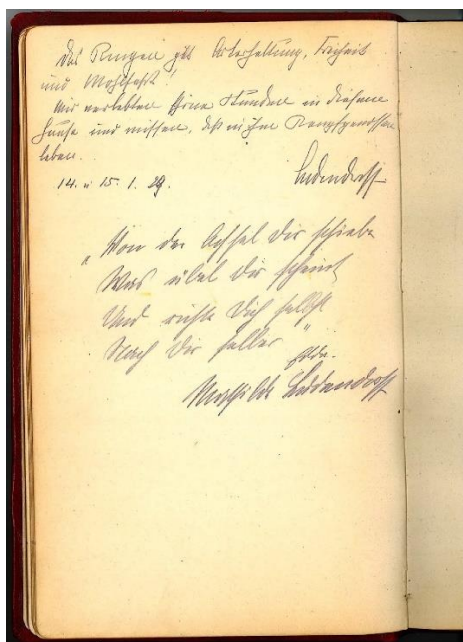 Das Ringen gilt Arterhaltung, Freiheit
und Wohlfahrt!
Wir verlebten schöne Stunden in diesem
Hause und wissen, daß in ihm Kampfgenossen
leben.
14. u 15. 1. 29. Ludendorff
„Von der Achsel Dir schiebe
Was übel Dir scheint
Und richte Dich selbst
Nach Dir selber"
Edda.
Mathilde Ludendorff